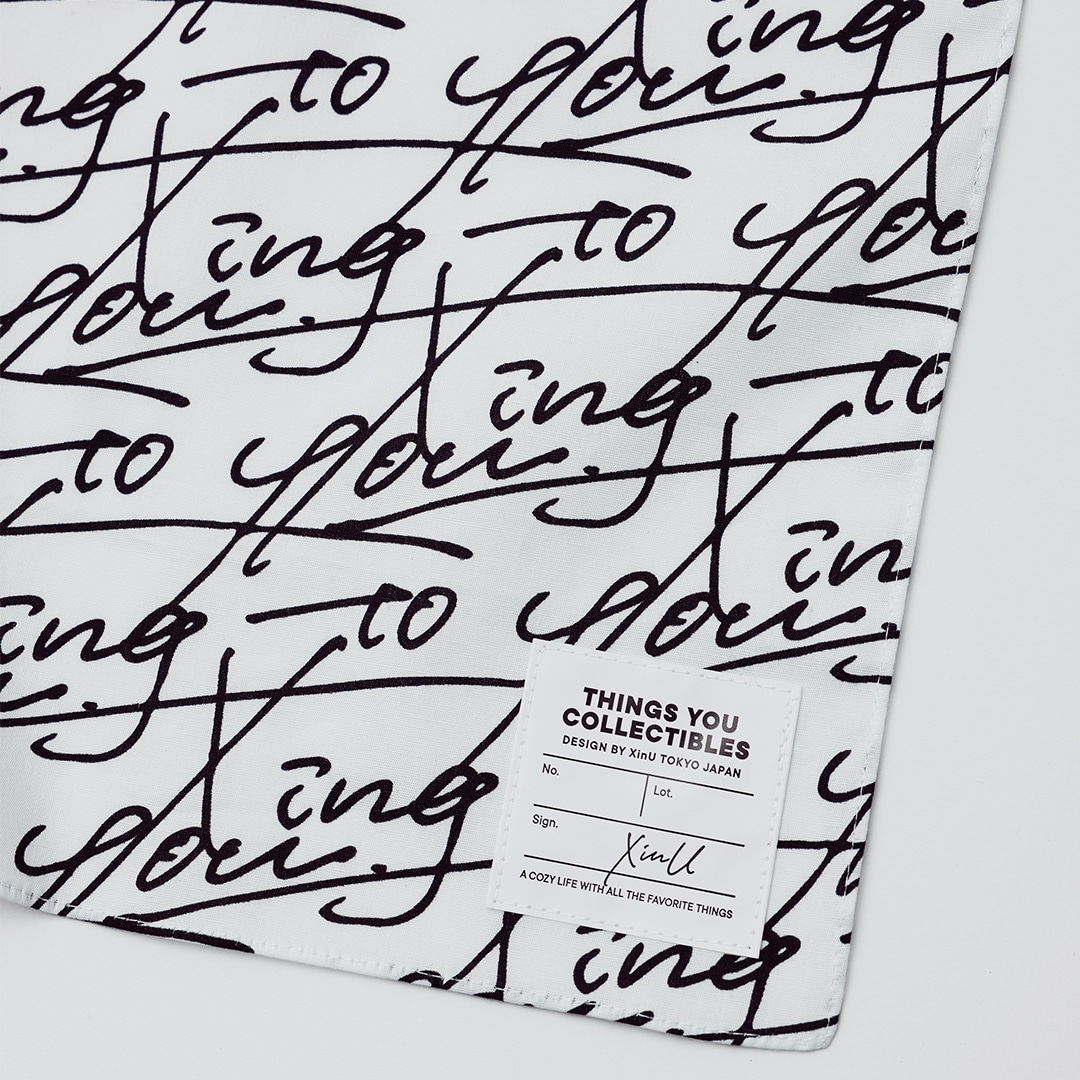 ing
ing to you.
Xing to you
you.
Xing to
to you.
Xin
ing to you.
Xing
you.
THINGS YOU
COLLECTIBLES
DESIGN BY XinU TOKYO JAPAN
No. Lot.
Sign. XinU
A COZY LIFE WITH ALL THE FAVORITE THINGS
Xing